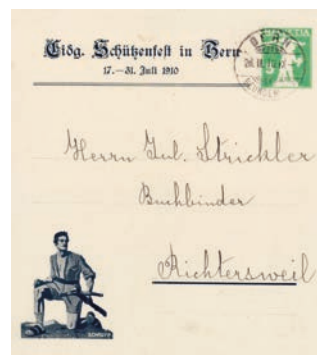 Eidg. Schützenfest in Bern
17.—31. Juli 1910
BERN
HELVETIA
Herrn Jul. Strickler
Buchbinder
Richtersweil